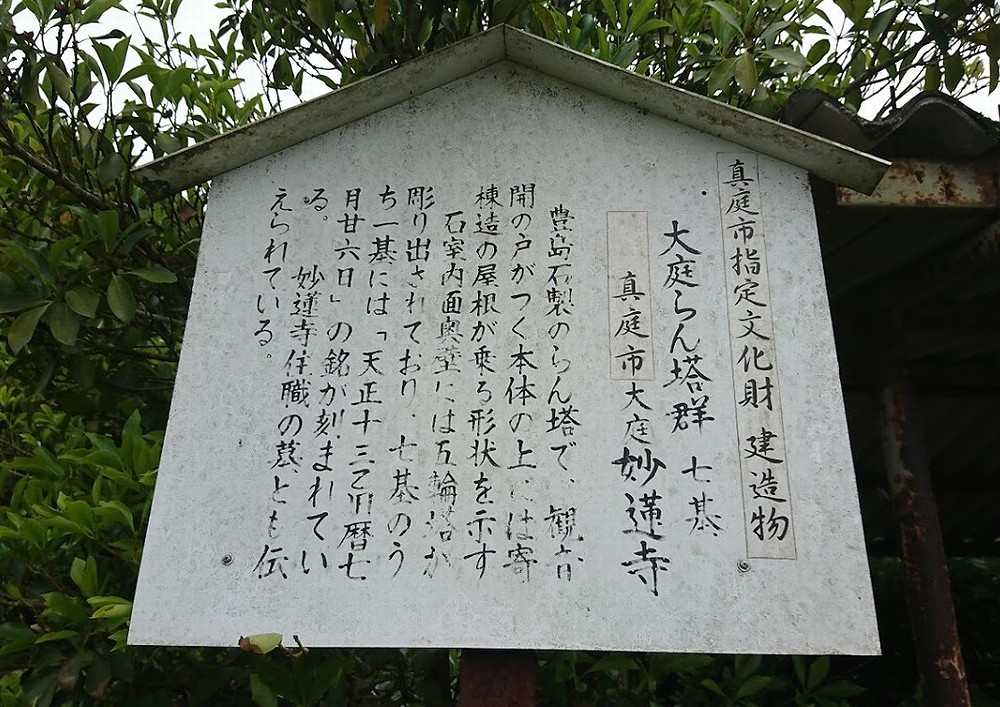 真庭市指定文化財 建造物
大庭らん塔群 七基
真庭市大庭妙蓮寺
豊島石製のらん塔で、観音
開の戸がつく本体の上には寄
棟造の屋根が乗る形状を示す
石室内面奥壁には五輪塔が
彫り出されており、七基のう
ち一基には「天正十三乙酉暦七
月廿六日」の銘が刻まれてい
る。 妙蓮寺住職の墓とも伝
えられている。